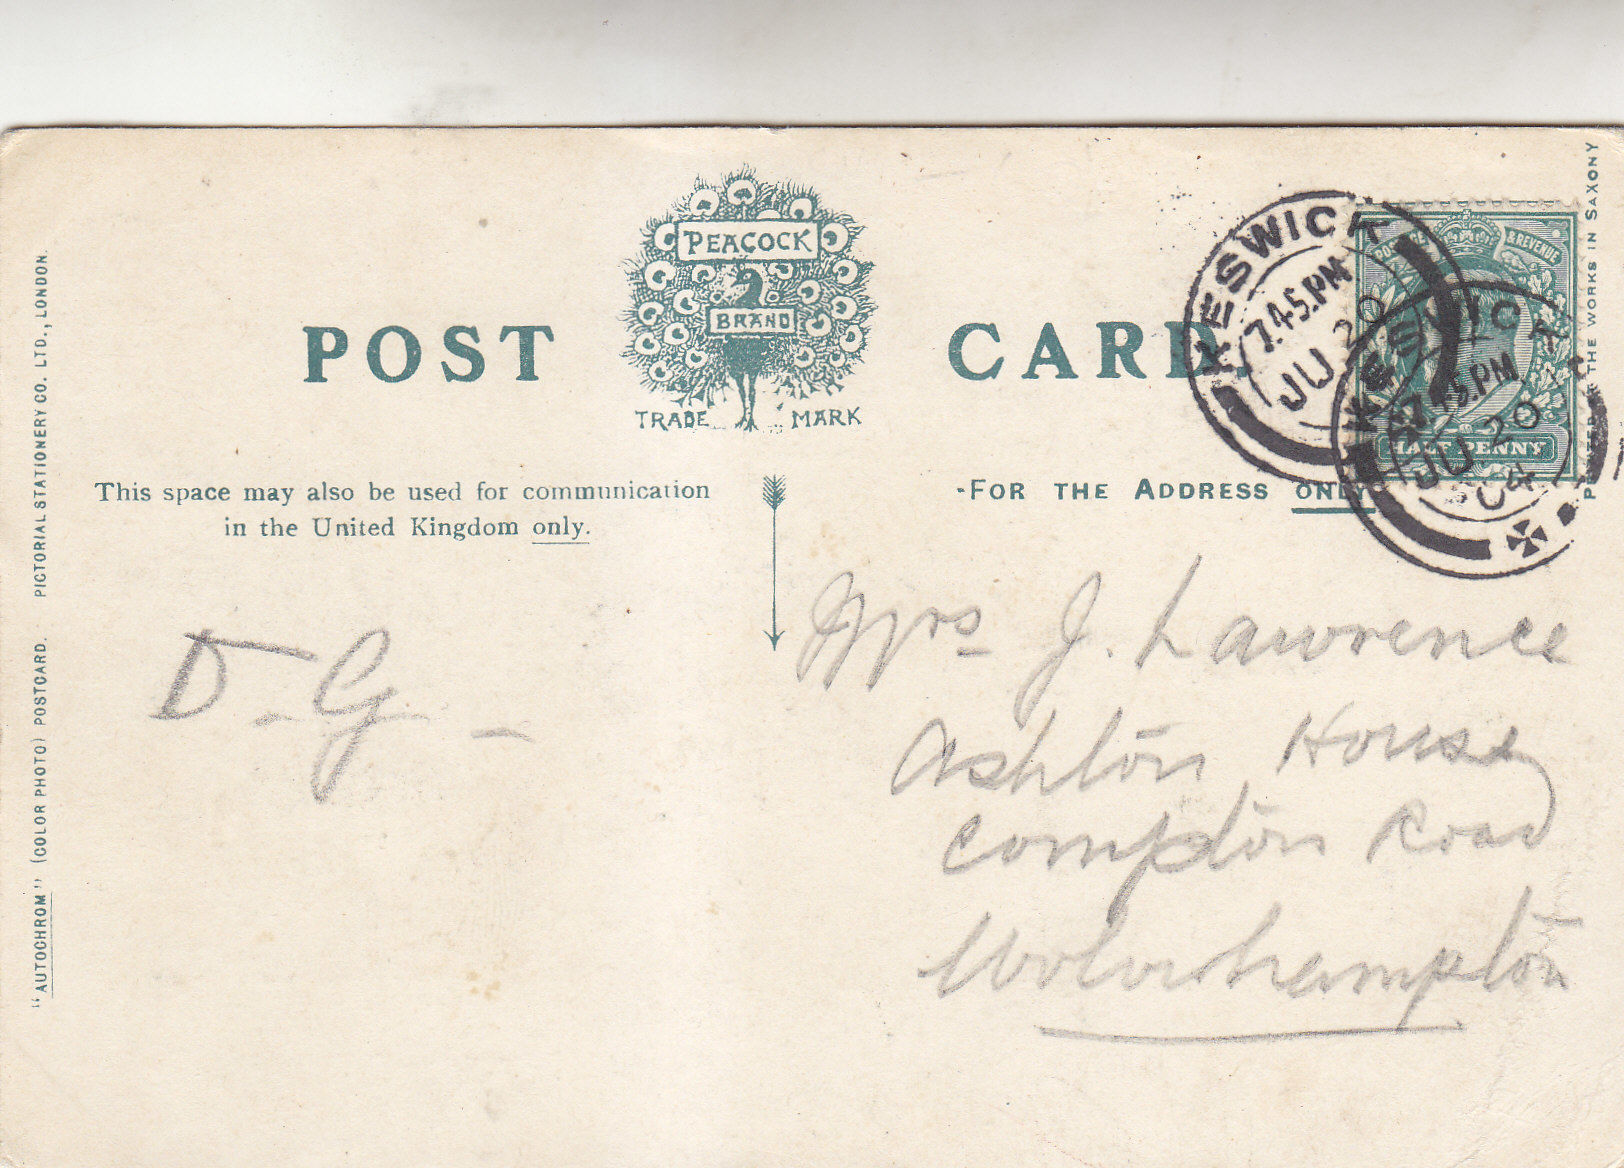 "AUTOCHROM" (COLOR PHOTO) POSTCARD. PICTORIAL STATIONERY CO. LTD., LONDON.
POST CARD
PEACOCK
BRAND
TRADE MARK
This space may also be used for communication
in the United Kingdom only.
-FOR THE ADDRESS ONLY
KESWICK
7.45.PM
JU 20
KESWICK
7.45.PM
JU 20
04
& REVENUE
HALF PENNY
AT THE WORKS IN SAXONY
D. G -
Mrs J. Lawrence
Ashton House
Compton Road
Wolverhampton